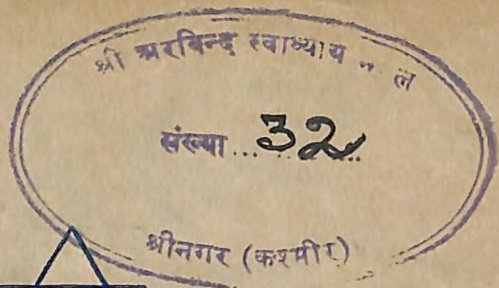 श्री अरविन्द स्वाध्याय
संख्या ... 32
श्रीनगर (कश्मीर)